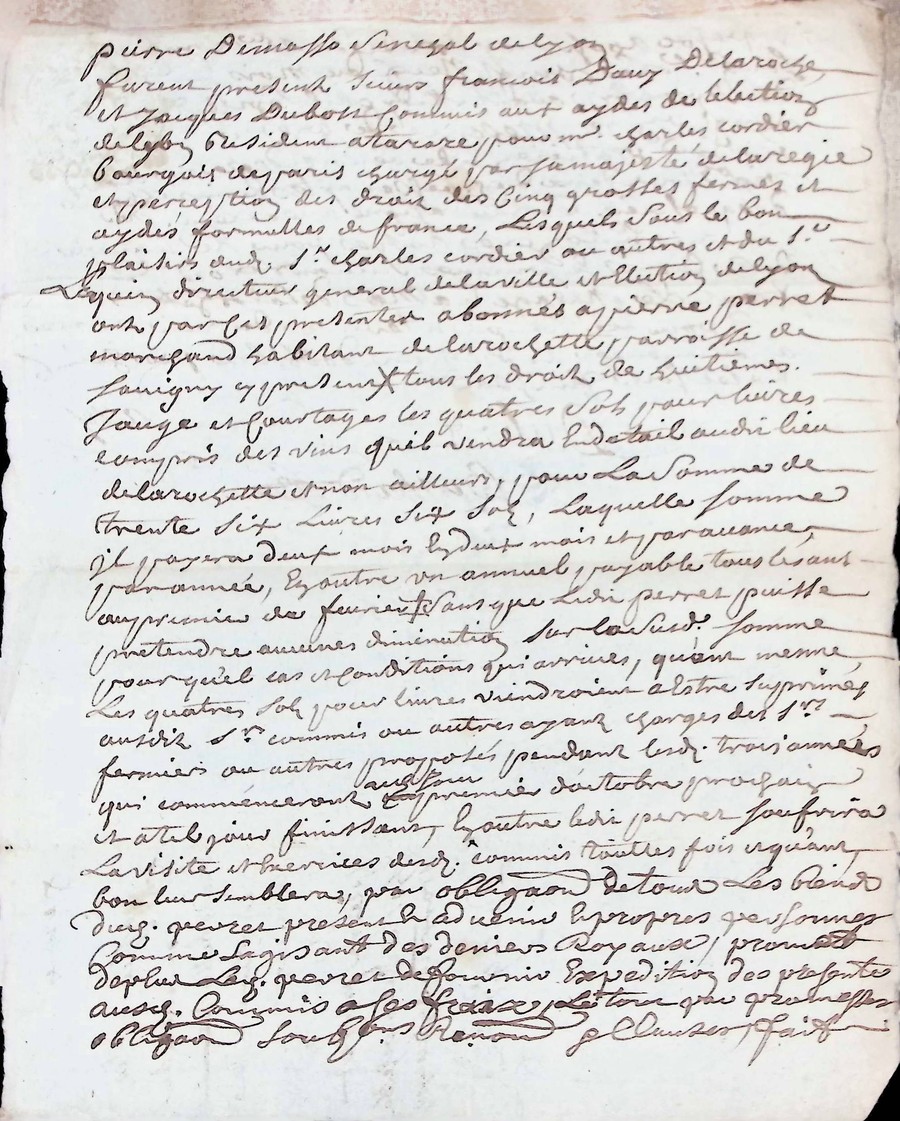 pierre Demasso Senegal de lyon
furent present sieurs francois Dauz Delaroche
et Jacques Dubost Commis aux aydes de lelection
de lyon Resident a tarare pour mr charles cordier
bourgois de paris chargé par sa majesté de la regie
et perception des droit des Cinq grosses fermes et
aydes formulles de france, Lesquels sous le bon
plaisirs dud. Sr. charles cordier ou autres et du Sr.
Lequin directeur general de la ville et Election de lyon
ont par Ces presentes abonnés a pierre perret
marchand habitant de larochette parroisse de
Savigny cy present tous les droit de huitiemes.
Jauge et Courtages les quatres sols pour livres
compris des vins quil vendra En detail audit lieu
de larochette et non ailleurs, pour La Somme de
trente six Livres six sols, Laquelle somme
il payera deux mois En deux mois et par avance,
par année, En outre un annuel payable tous les ans
au premier de fevrier sans que Ledit perret puisse
pretendre aucunes diminution sur la susd. somme
pour quel cas et Conditions qui arrives, quant mesme
Les quatres sols pour livres viendroient a Estre suprimés
ausdit Srs commis ou autres ayant charges des Srs
fermiers ou autres proposés pendant lesd. trois années
qui commenceront au jour premier doctobre prochain
et a tel jour finissant, En outre ledit perret souffrira
La visite et Exercices desd. commis touttes fois et quant
bon leur semblera, par obligaon de tous Les biens
dud. perret present Et advenir Et propres personnes
Comme sagissant des deniers Royaux, promet
de plus Led. perret de fournir Expedition des presente
ausd. Commis a ses fraix, Le tout par promesses
obligaon Renon & Clauses, fait